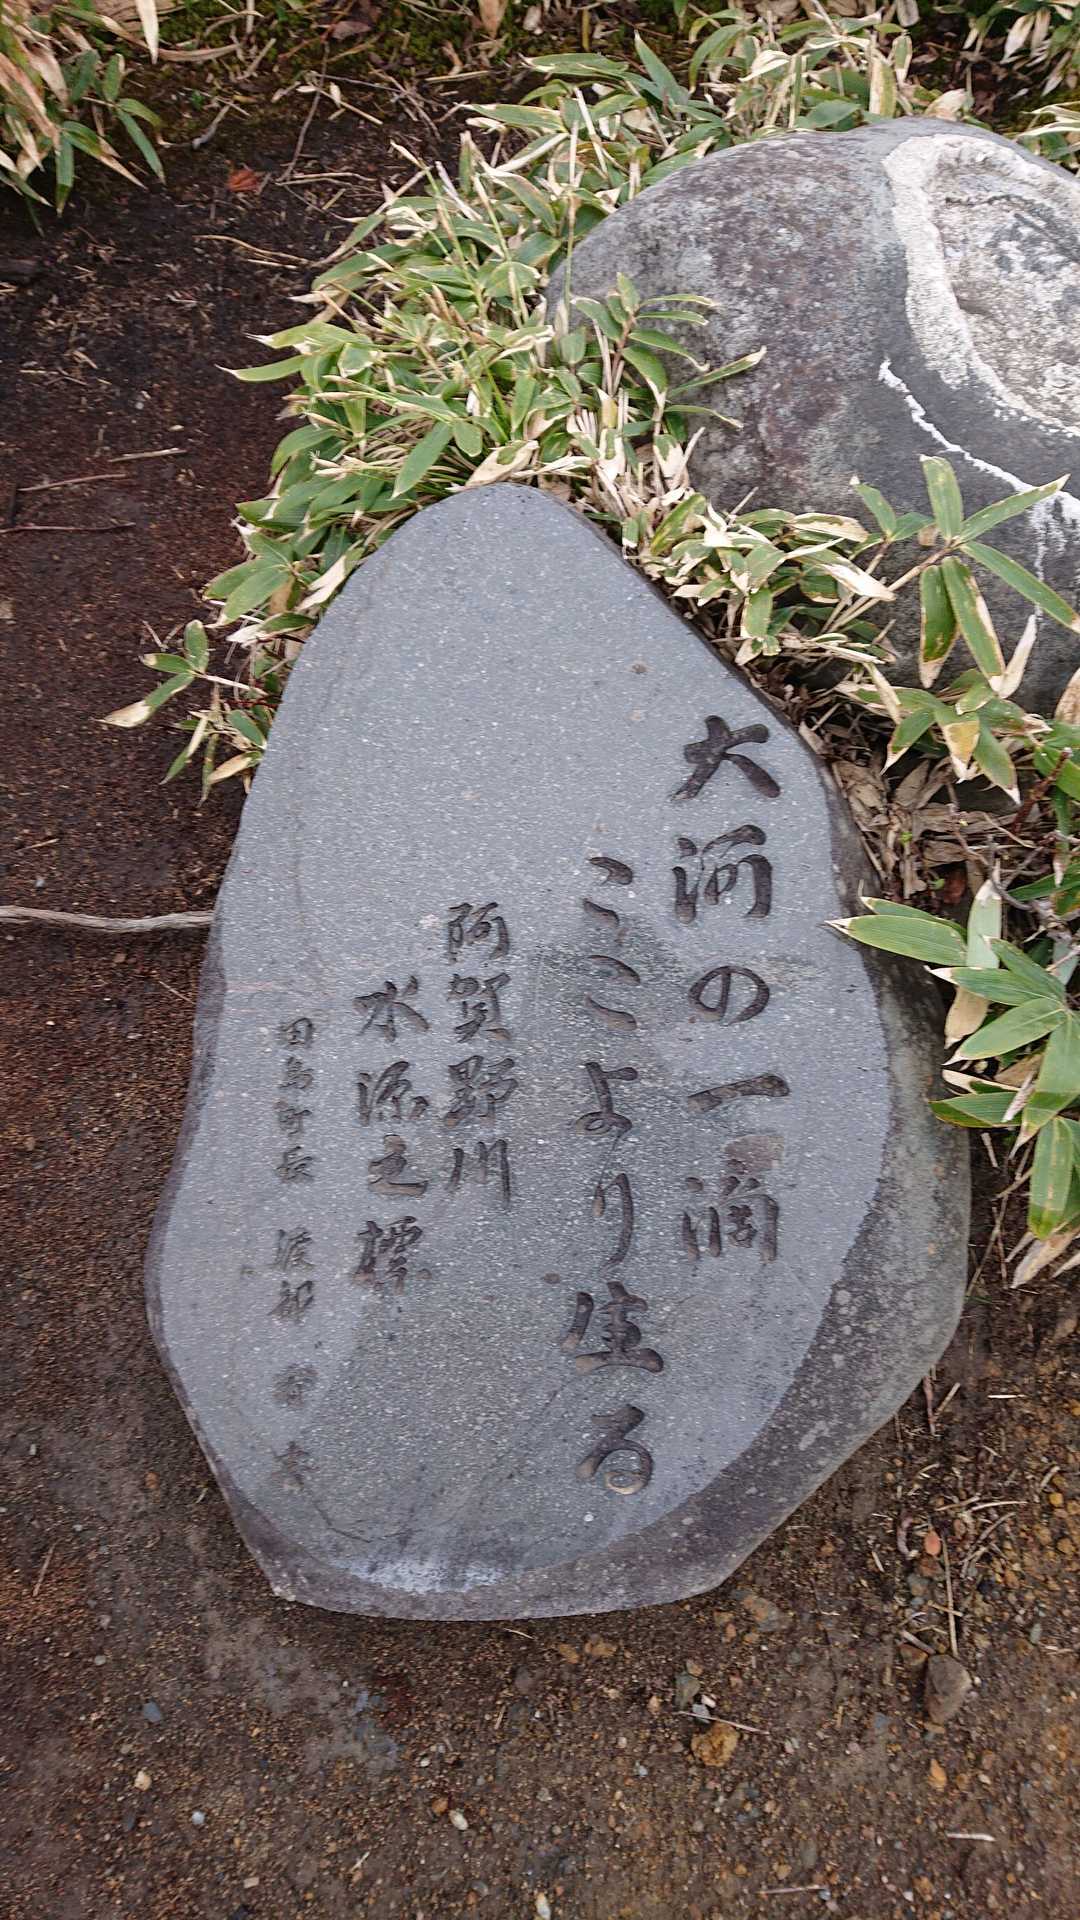 大河の一滴
ここより生る
阿賀野川
水源之標
田島町長 渡部